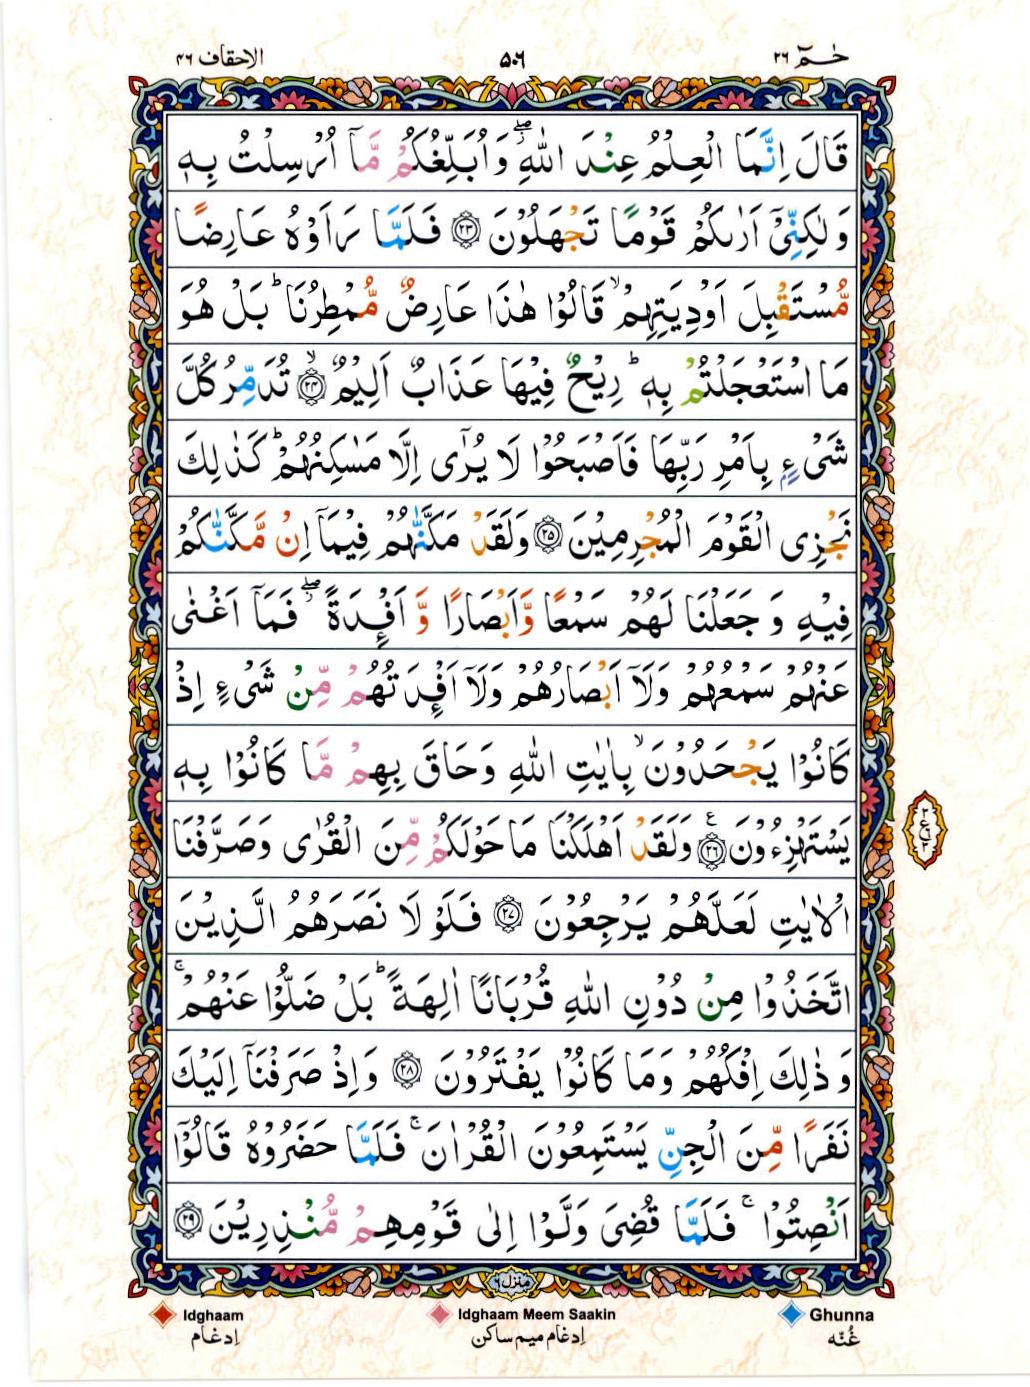 الاحقاف ٤٦ ٥٠٦ حٰمٓ ٢٦
قَالَ اِنَّمَا الْعِلْمُ عِنْدَ اللّٰهِ ۖ وَاُبَلِّغُكُمْ مَّاۤ اُرْسِلْتُ بِهٖ
وَلٰكِنِّیْۤ اَرٰىكُمْ قَوْمًا تَجْهَلُوْنَ ﴿۲۳﴾ فَلَمَّا رَاَوْهُ عَارِضًا
مُّسْتَقْبِلَ اَوْدِیَتِهِمْ ۙ قَالُوْا هٰذَا عَارِضٌ مُّمْطِرُنَا ؕ بَلْ هُوَ
مَا اسْتَعْجَلْتُمْ بِهٖ ؕ رِیْحٌ فِیْهَا عَذَابٌ اَلِیْمٌ ۙ﴿۲۴﴾ تُدَمِّرُ كُلَّ
شَیْءٍۭ بِاَمْرِ رَبِّهَا فَاَصْبَحُوْا لَا یُرٰۤی اِلَّا مَسٰكِنُهُمْ ؕ كَذٰلِكَ
نَجْزِی الْقَوْمَ الْمُجْرِمِیْنَ ﴿۲۵﴾ وَلَقَدْ مَكَّنّٰهُمْ فِیْمَاۤ اِنْ مَّكَّنّٰكُمْ
فِیْهِ وَ جَعَلْنَا لَهُمْ سَمْعًا وَّاَبْصَارًا وَّ اَفْـِٕدَةً ۖ فَمَاۤ اَغْنٰی
عَنْهُمْ سَمْعُهُمْ وَلَاۤ اَبْصَارُهُمْ وَلَاۤ اَفْـِٕدَتُهُمْ مِّنْ شَیْءٍ اِذْ
كَانُوْا یَجْحَدُوْنَ ۙ بِاٰیٰتِ اللّٰهِ وَحَاقَ بِهِمْ مَّا كَانُوْا بِهٖ
یَسْتَهْزِءُوْنَ ﴿۲۶﴾ ع وَلَقَدْ اَهْلَكْنَا مَا حَوْلَكُمْ مِّنَ الْقُرٰی وَصَرَّفْنَا
الْاٰیٰتِ لَعَلَّهُمْ یَرْجِعُوْنَ ﴿۲۷﴾ فَلَوْ لَا نَصَرَهُمُ الَّذِیْنَ
اتَّخَذُوْا مِنْ دُوْنِ اللّٰهِ قُرْبَانًا اٰلِهَةً ؕ بَلْ ضَلُّوْا عَنْهُمْ ۚ
وَ ذٰلِكَ اِفْكُهُمْ وَمَا كَانُوْا یَفْتَرُوْنَ ﴿۲۸﴾ وَاِذْ صَرَفْنَاۤ اِلَیْكَ
نَفَرًا مِّنَ الْجِنِّ یَسْتَمِعُوْنَ الْقُرْاٰنَ ۚ فَلَمَّا حَضَرُوْهُ قَالُوْۤا
اَنْصِتُوْا ۚ فَلَمَّا قُضِیَ وَلَّوْا اِلٰی قَوْمِهِمْ مُّنْذِرِیْنَ ﴿۲۹﴾
منزل ٦
Idghaam Idghaam Meem Saakin Ghunna
اِدغَام اِدغَام میم ساکن غُنّہ